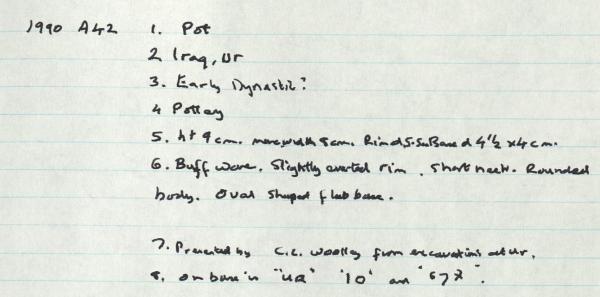 1990 A42 1. Pot
2 Iraq, Ur
3. Early Dynastic?
4 Pottery
5. ht 9cm. max width 8cm. Rim d. 5.5 Base d 4½ x 4cm.
6. Buff ware. Slightly everted rim. Short neck. Rounded
body. Oval shaped flat base.
7. Presented by C.L. Woolley from excavations at Ur.
8. on base is "UR" '10' and "67